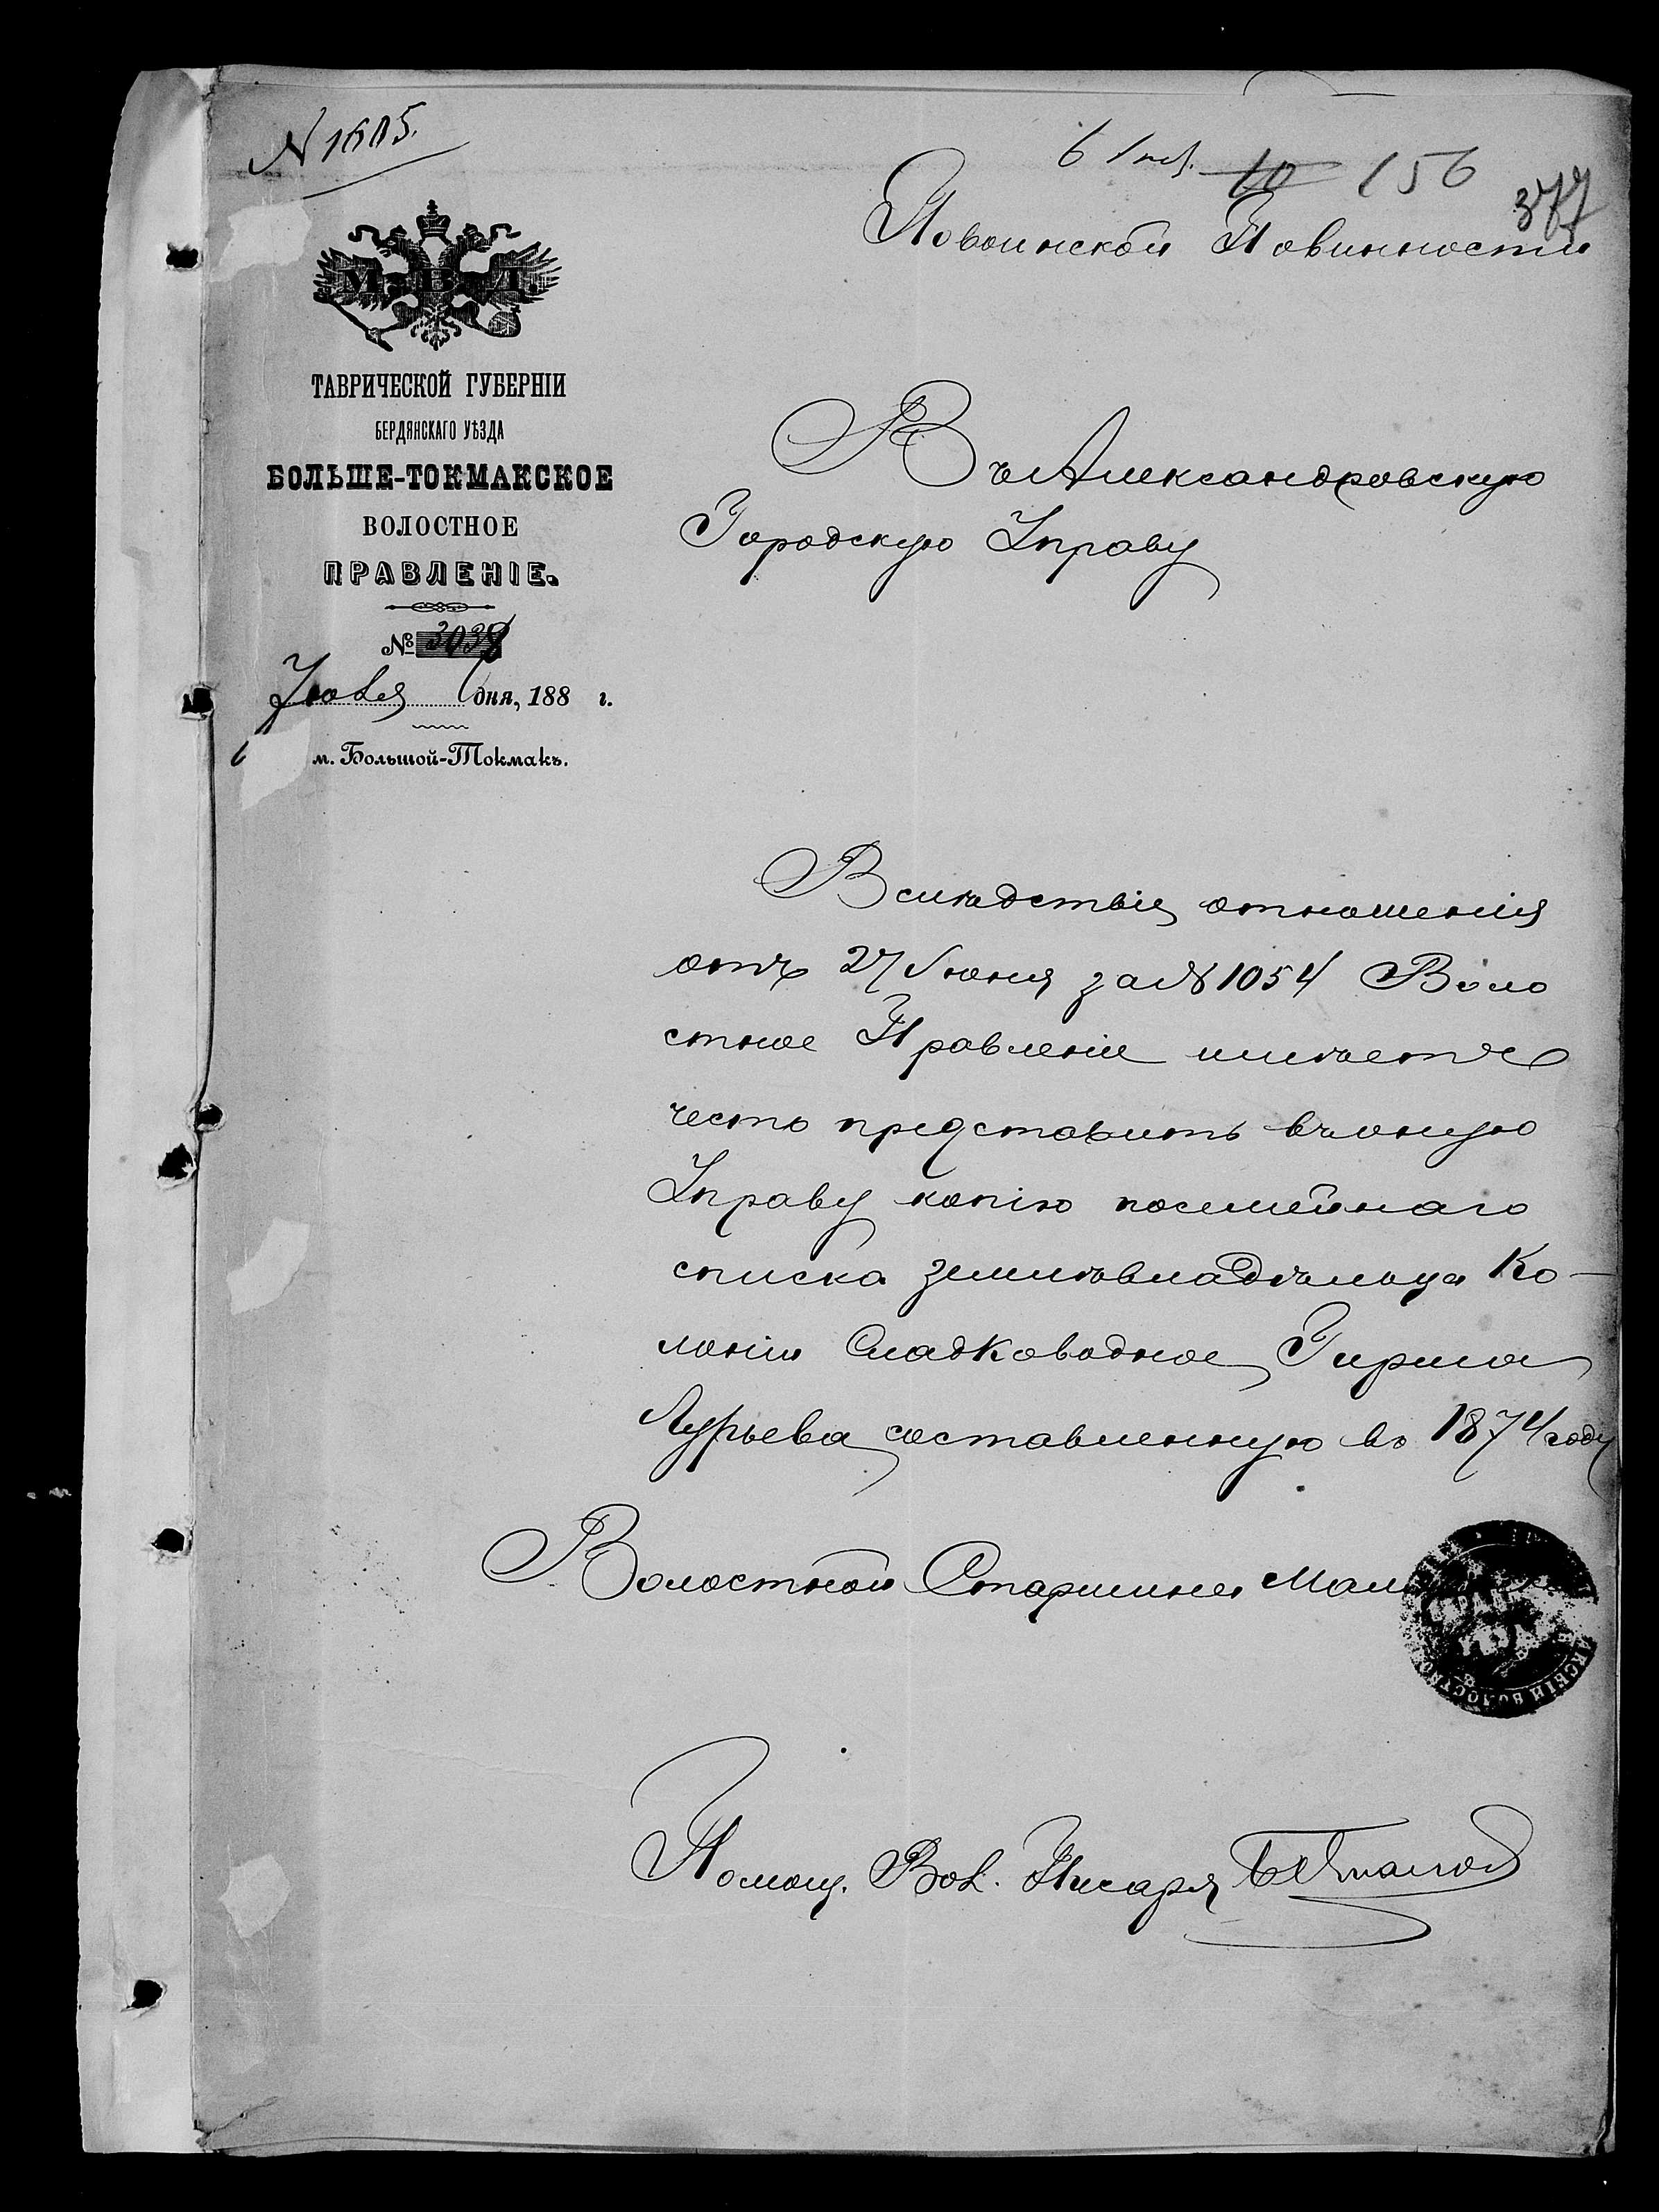 N 1605.
6 Іюл. 10 156
377
По воинской Повинности
М. В. Д.
ТАВРИЧЕСКОЙ ГУБЕРНІИ
БЕРДЯНСКАГО УѢЗДА
БОЛЬШЕ-ТОКМАКСКОЕ
ВОЛОСТНОЕ
ПРАВЛЕНІЕ.
№ 3038
Іюля дня, 188 г.
м. Большой-Токмакъ.
Въ Александровскую
Городскую Управу
Вслѣдствіе отношенія
отъ 27 Іюня за № 1054 Воло
стное Правленіе имѣетъ
честь представить въ оную
Управу копію посемейнаго
списка землѣвладѣльца Ко-
лоніи Сладководное Гирша
Лурьева составленную въ 1874 году
Волостной Старшина
Помощ. Вол. Писаря